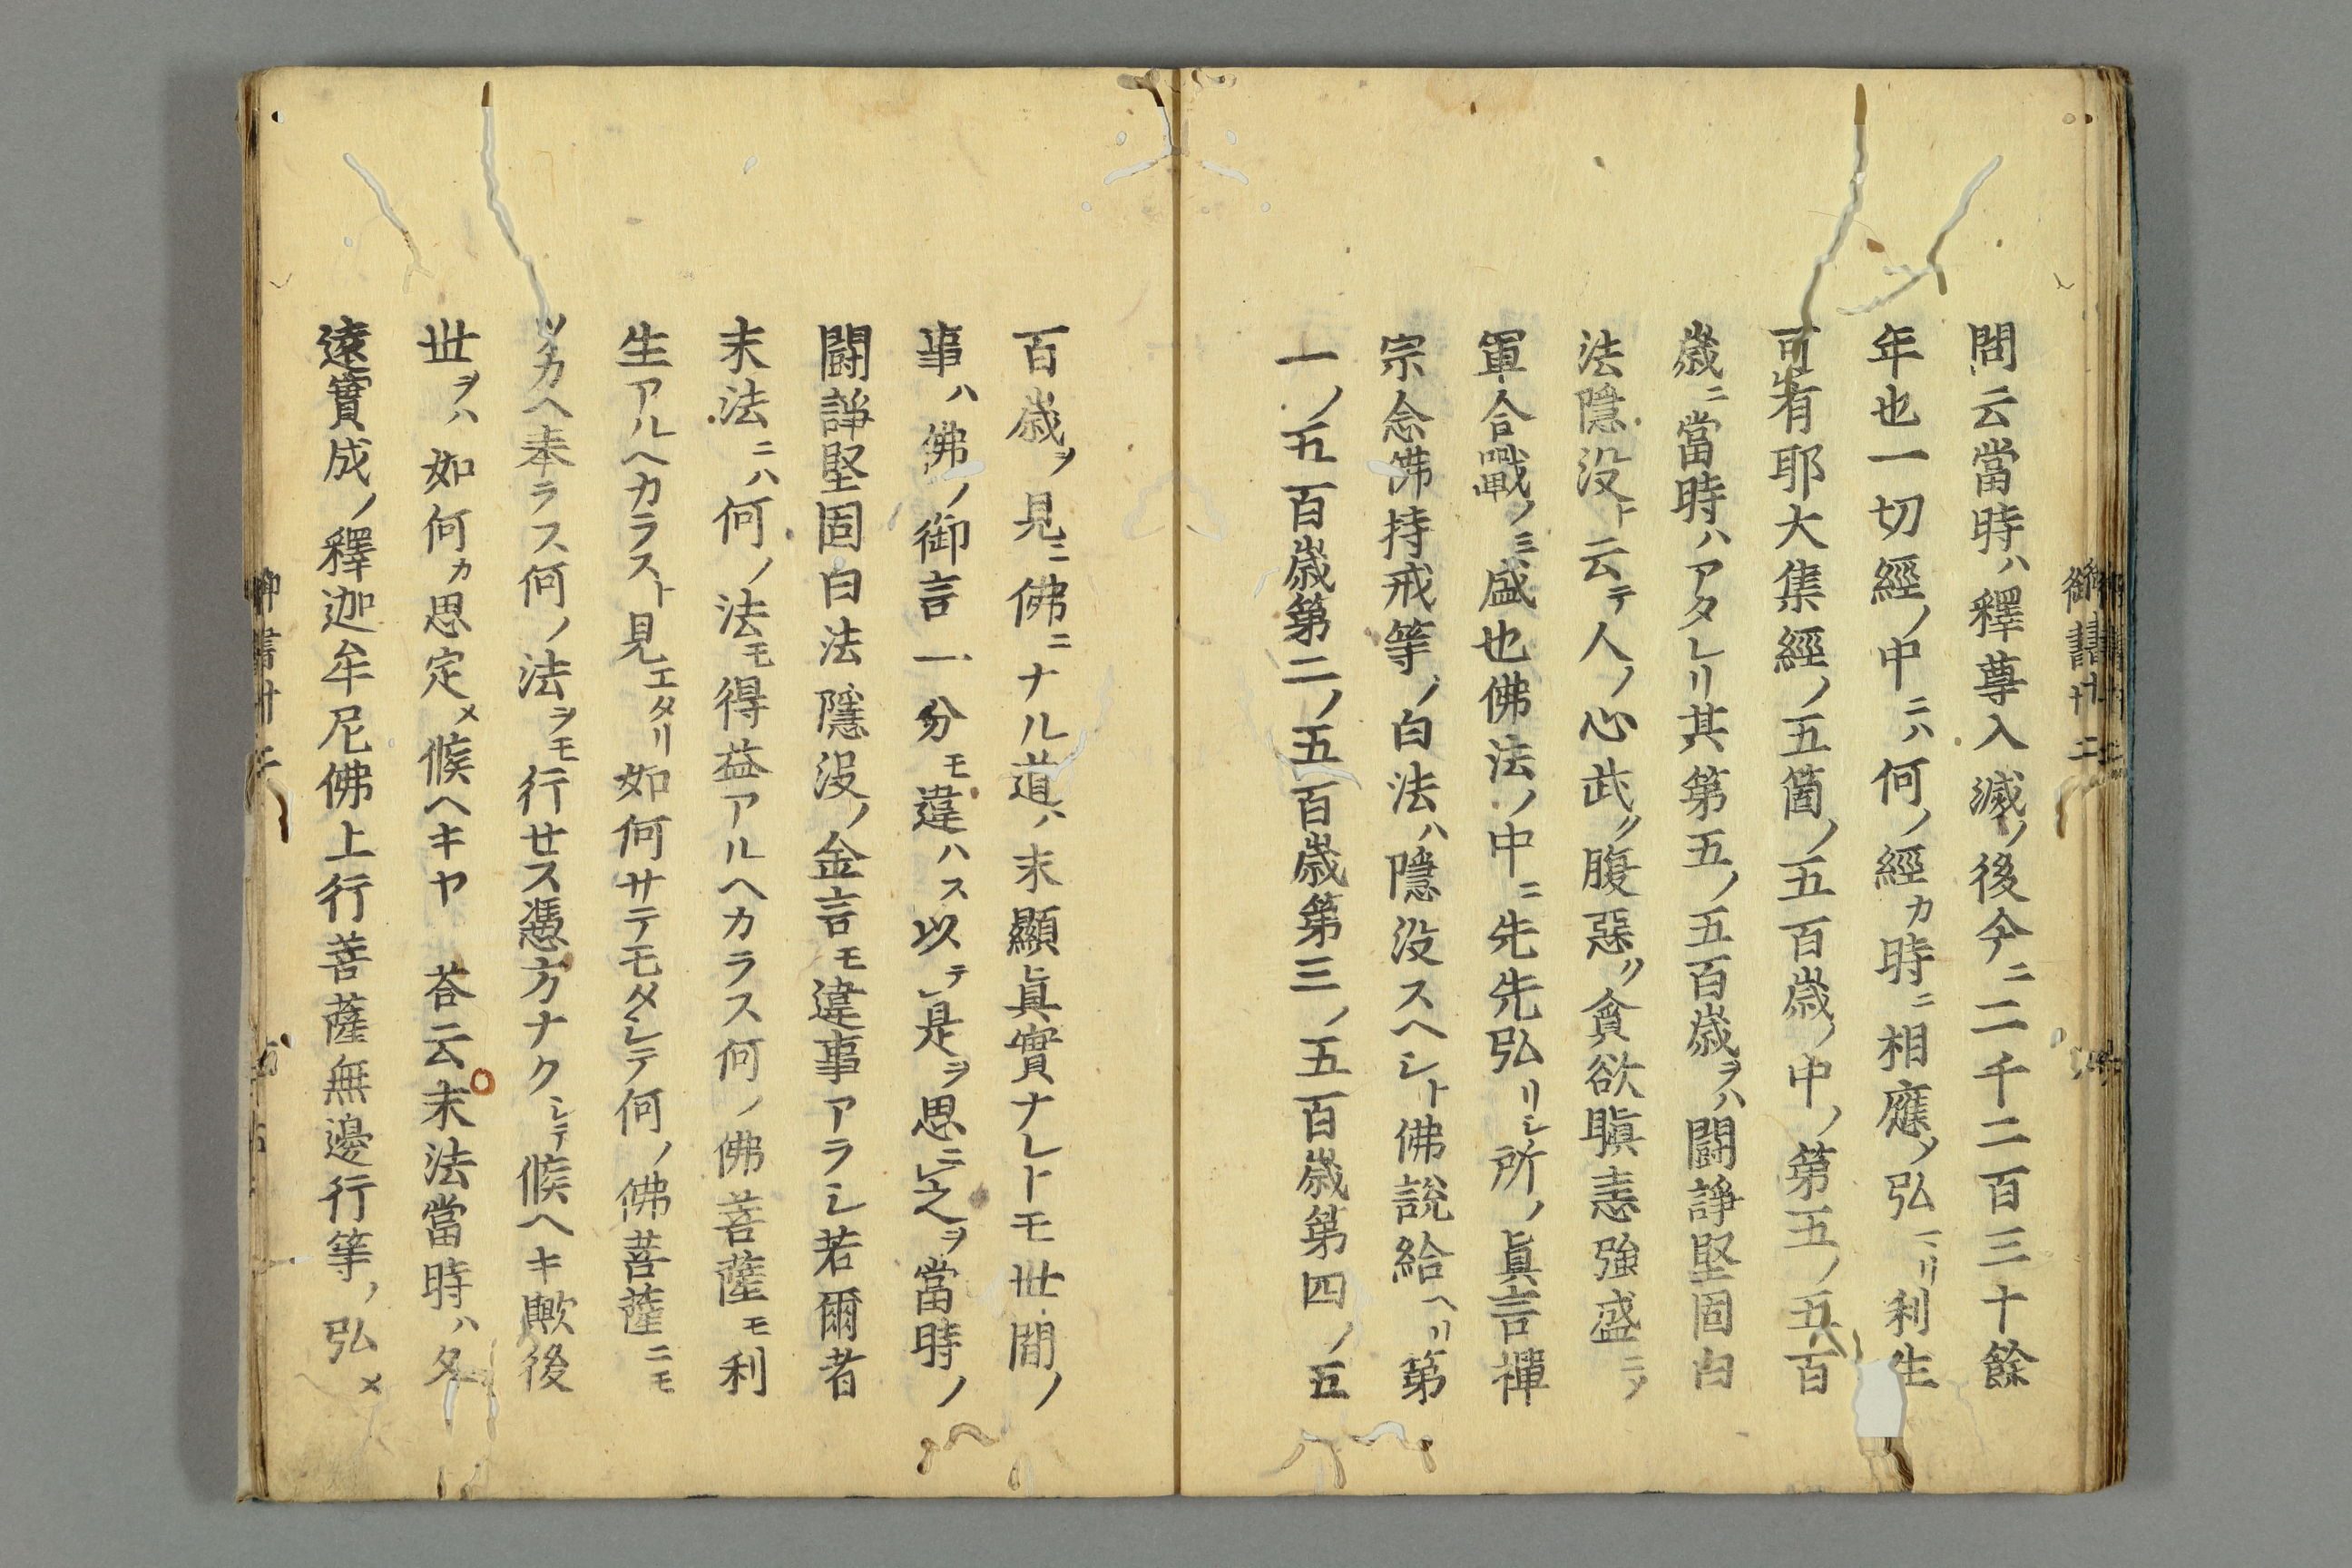 問云當時ハ釋尊入滅ノ後今ニ二千二百三十餘
年也一切經ノ中ニハ何ノ經カ時ニ相應ソ弘マリ利生
可有耶大集經ノ五箇ノ五百歳ノ中ノ第五ノ五百
歳ニ當時ハアタレリ其第五ノ五百歳ヲハ闘諍堅固白
法隱没ト云テ人ノ心武ク腹惡ク貪欲瞋恚強盛ニソ
軍合戰ノミ盛也佛法ノ中ニ先先弘リシ所ノ眞言禪
宗念佛持戒等ノ白法ハ隱没スヘシト佛説給ヘリ第
一ノ五百歳第二ノ五百歳第三ノ五百歳第四ノ五
百歳ヲ見ニ佛ニナル道ハ未顯眞實ナレトモ世間ノ
事ハ佛ノ御言一分モ違ハス以テ是ヲ思ニ之ヲ當時ノ
闘諍堅固白法隱没ノ金言モ違事アラシ若爾者
末法ニハ何ノ法モ得益アルヘカラス何ノ佛菩薩モ利
生アルヘカラスト見エタリ如何サテモタシテ何ノ佛菩薩ニモ
ツカヘ奉ラス何ノ法ヲモ行セス憑方ナクシテ候ヘキ歟後
世ヲハ如何カ思定メ候ヘキヤ 荅云末法當時ハ久
遠實成ノ釋迦牟尼佛上行菩薩無邊行等ノ弘メ
御書廿二